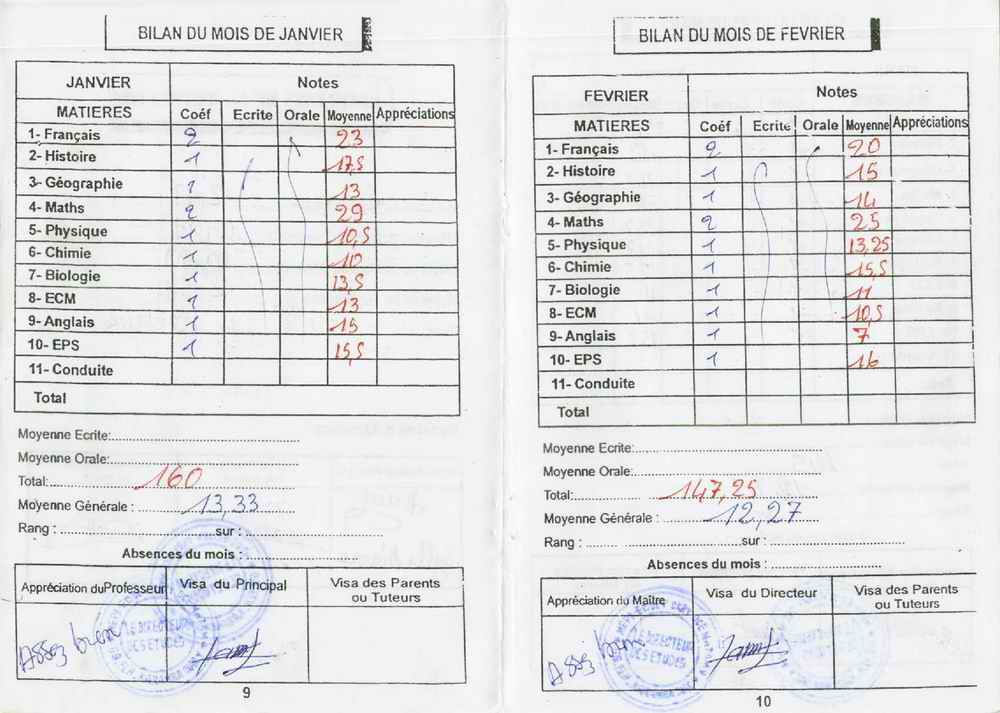 BILAN DU MOIS DE JANVIER
JANVIER Notes
MATIERES Coéf Ecrite Orale Moyenne Appréciations
1- Français 2 23
2- Histoire 1 17,5
3- Géographie 1 13
4- Maths 2 29
5- Physique 1 10,5
6- Chimie 1 10
7- Biologie 1 13,5
8- ECM 1 13
9- Anglais 1 15
10- EPS 1 15,5
11- Conduite
Total
Moyenne Ecrite:
Moyenne Orale:
Total: 160
Moyenne Générale : 13,33
Rang : sur :
Absences du mois :
Appréciation du Professeur Visa du Principal Visa des Parents ou Tuteurs
Assez bien
LE DIRECTEUR
DES ETUDES
9
BILAN DU MOIS DE FEVRIER
FEVRIER Notes
MATIERES Coéf Ecrite Orale Moyenne Appréciations
1- Français 2 20
2- Histoire 1 15
3- Géographie 1 14
4- Maths 2 25
5- Physique 1 13,25
6- Chimie 1 15,5
7- Biologie 1 11
8- ECM 1 10,5
9- Anglais 1 7
10- EPS 1 16
11- Conduite
Total
Moyenne Ecrite:
Moyenne Orale:
Total: 147,25
Moyenne Générale : 12,27
Rang : sur :
Absences du mois :
Appréciation du Maître Visa du Directeur Visa des Parents ou Tuteurs
Assez bien
LE DIRECTEUR
DES ETUDES
10